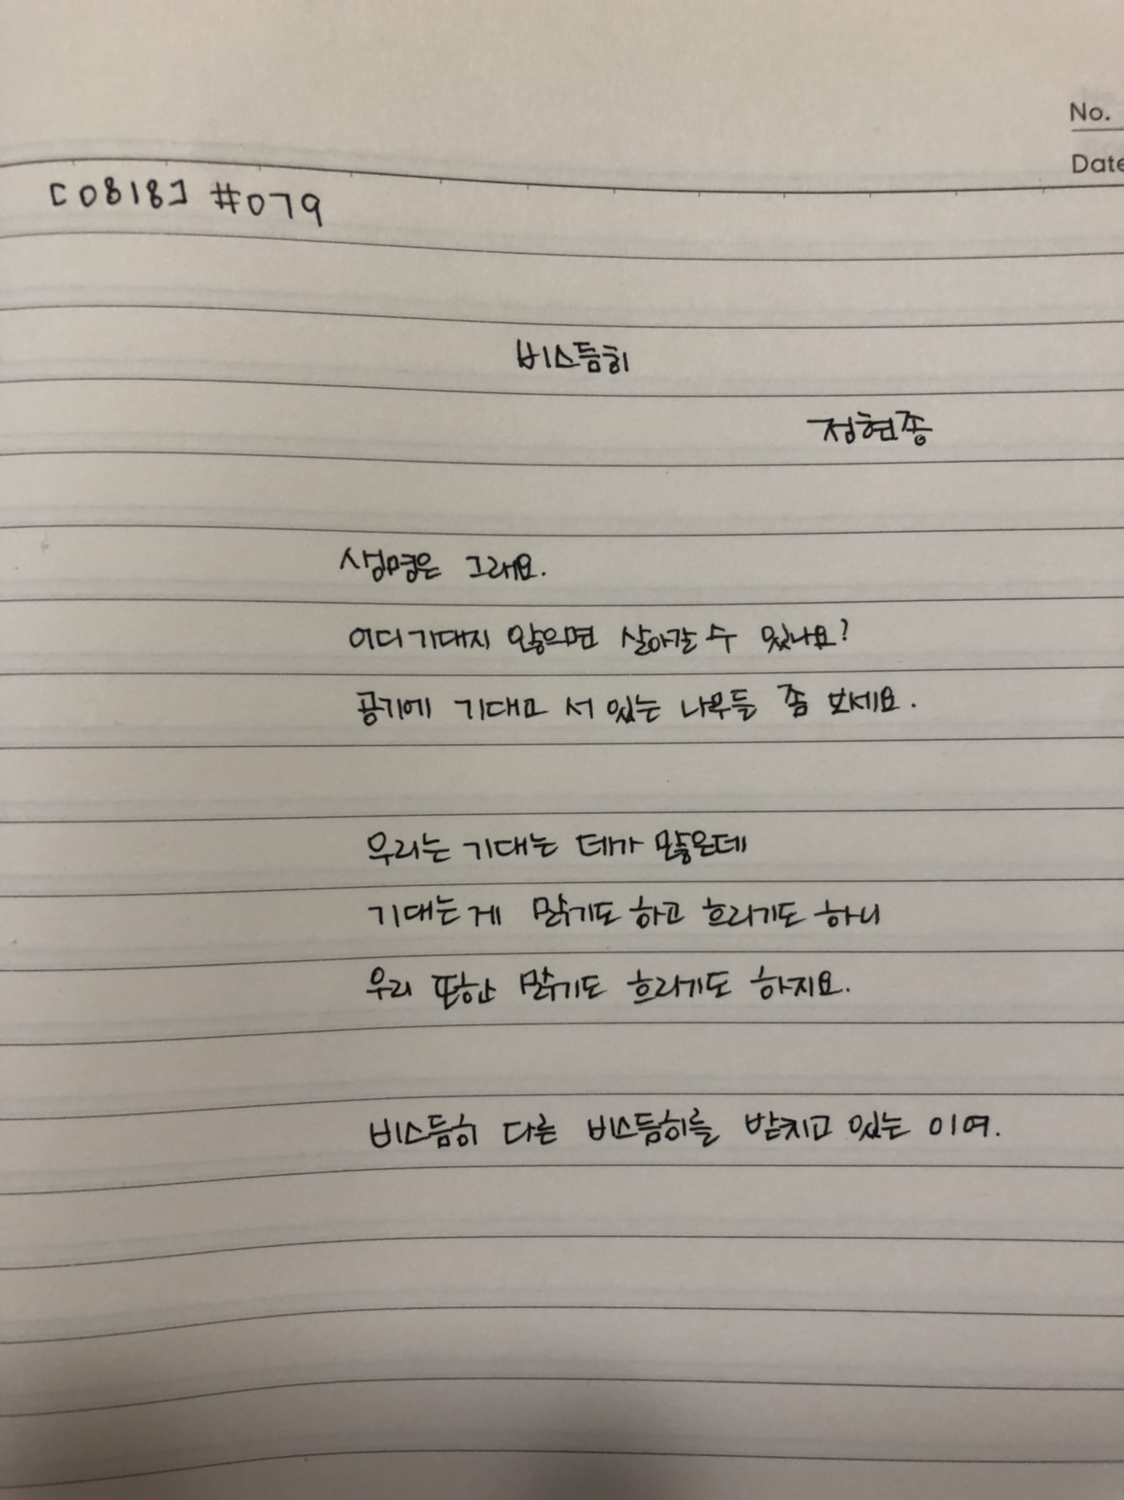 No.
Date
[0818] #079
비스듬히
정현종
생명은 그래요.
어디 기대지 않으면 살아갈 수 있나요?
공기에 기대고 서 있는 나무들 좀 보세요.
우리는 기대는 데가 많은데
기대는 게 맑기도 하고 흐리기도 하니
우리 또한 맑기도 흐리기도 하지요.
비스듬히 다른 비스듬히를 받치고 있는 이여.